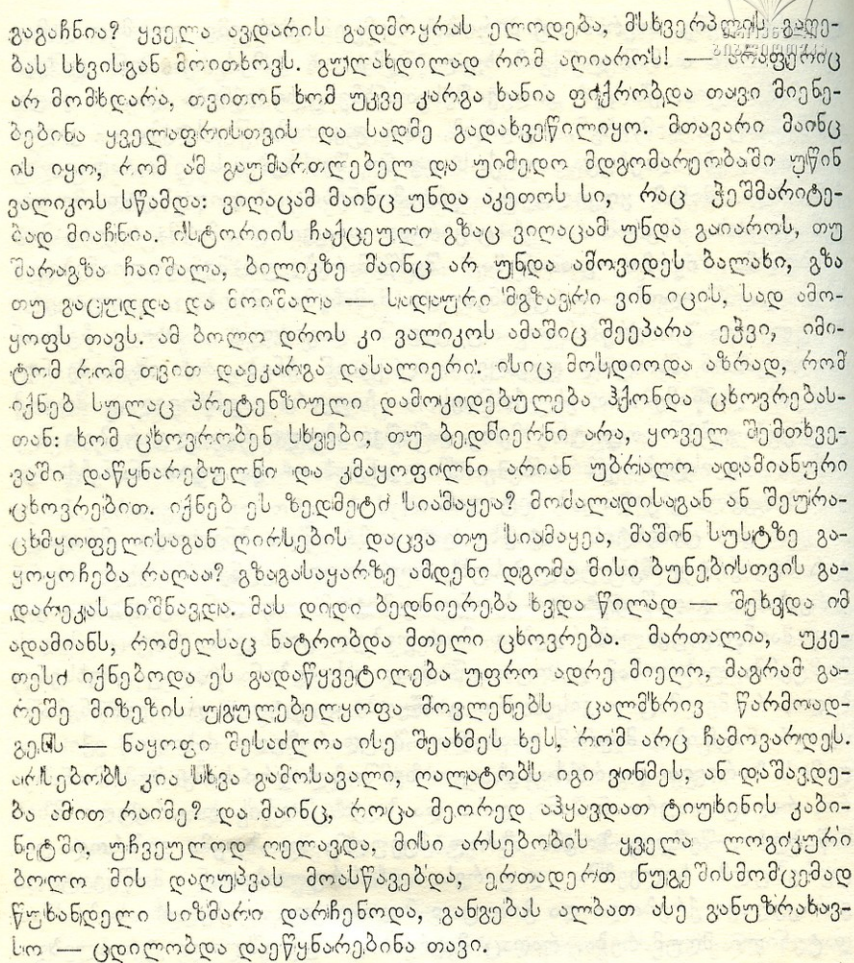 გაგაჩნია? ყველა ავდარის გადმოყრას ელოდება, მსხვერპლის გაღე-
ბას სხვისგან მოითხოვს. გულახდილად რომ აღიაროს! — არაფერიც
არ მომხდარა, თვითონ ხომ უკვე კარგა ხანია ფიქრობდა თავი მიენე-
ბებინა ყველაფრისთვის და სადმე გადახვეწილიყო. მთავარი მაინც
ის იყო, რომ ამ გაუმართლებელ და უიმედო მდგომარეობაში უწინ
ვალიკოს სწამდა: ვიღაცამ მაინც უნდა აკეთოს სი, რაც ჭეშმარიტე-
ბად მიაჩნია. ისტორიის ჩაქცეული გზაც ვიღაცამ უნდა გაიაროს, თუ
შარაგზა ჩაიშალა, ბილიკზე მაინც არ უნდა ამოვიდეს ბალახი, გზა
თუ გაცუდდა და მოიშალა — სადაური მგზავრი ვინ იცის, სად ამო-
ყოფს თავს. ამ ბოლო დროს კი ვალიკოს ამაშიც შეეპარა ეჭვი, იმი-
ტომ რომ თვით დაეკარგა დასალიერი. ისიც მოსდიოდა აზრად, რომ
იქნებ სულაც პრეტენზიული დამოკიდებულება ჰქონდა ცხოვრებას-
თან: ხომ ცხოვრობენ სხვები, თუ ბედნიერნი არა, ყოველ შემთხვე-
ვაში დაწყნარებულნი და კმაყოფილნი არიან უბრალო ადამიანური
ცხოვრებით. იქნებ ეს ზედმეტი სიამაყეა? მოძალადისაგან ან შეურა-
ცხმყოფელისაგან ღირსების დაცვა თუ სიამაყეა, მაშინ სუსტზე გა-
ყოყოჩება რაღაა? გზაგასაყარზე ამდენი დგომა მისი ბუნებისთვის გა-
დარეკას ნიშნავდა. მას დიდი ბედნიერება ხვდა წილად — შეხვდა იმ
ადამიანს, რომელსაც ნატრობდა მთელი ცხოვრება. მართალია, უკე-
თესი იქნებოდა ეს გადაწყვეტილება უფრო ადრე მიეღო, მაგრამ გა-
რეშე მიზეზის უგულებელყოფა მოვლენებს ცალმხრივ წარმოად-
გენს — ნაყოფი შესაძლოა ისე შეახმეს ხეს, რომ არც ჩამოვარდეს.
არსებობს კია სხვა გამოსავალი, ღალატობს იგი ვინმეს, ან დაშავდე-
ბა ამით რაიმე? და მაინც, როცა მეორედ აჰყავდათ ტიუხინის კაბი-
ნეტში, უჩვეულოდ ღელავდა, მისი არსებობის ყველა ლოგიკური
ბოლო მის დაღუპვას მოასწავებდა, ერთადერთ ნუგეშისმომცემად
წუხანდელი სიზმარი დარჩენოდა, განგებას ალბათ ასე განუზრახავ-
სო — ცდილობდა დაეწყნარებინა თავი.